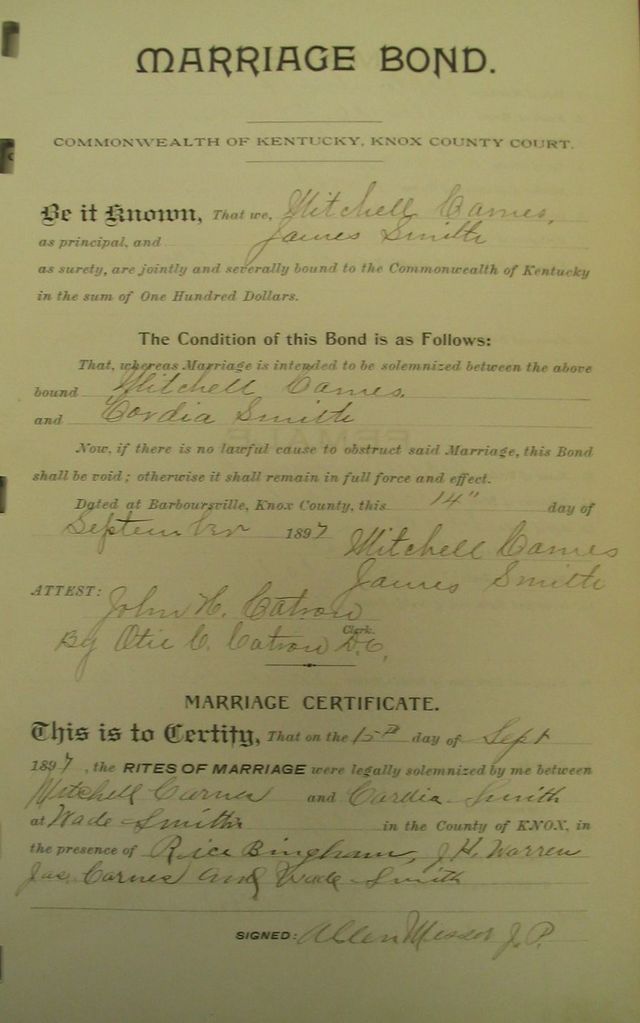 MARRIAGE BOND.
COMMONWEALTH OF KENTUCKY, KNOX COUNTY COURT.
Be it Known, That we, Mitchell Carnes,
as principal, and James Smith
as surety, are jointly and severally bound to the Commonwealth of Kentucky
in the sum of One Hundred Dollars.
The Condition of this Bond is as Follows:
That, whereas Marriage is intended to be solemnized between the above
bound Mitchell Carnes
and Cordia Smith
Now, if there is no lawful cause to obstruct said Marriage, this Bond
shall be void; otherwise it shall remain in full force and effect.
Dated at Barboursville, Knox County, this 14" day of
September 1897
Mitchell Carnes
James Smith
ATTEST: John H. Catron
Clerk.
By Otie C. Catron D.C.
MARRIAGE CERTIFICATE.
This is to Certify, That on the 15th day of Sept
1897, the RITES OF MARRIAGE were legally solemnized by me between
Mitchell Carnes and Cardia Smith
at Wade Smiths in the County of KNOX, in
the presence of Rice Bingham, J.H. Warren
Jas. Carnes and Wade Smith
SIGNED: Allen Messer J.P.